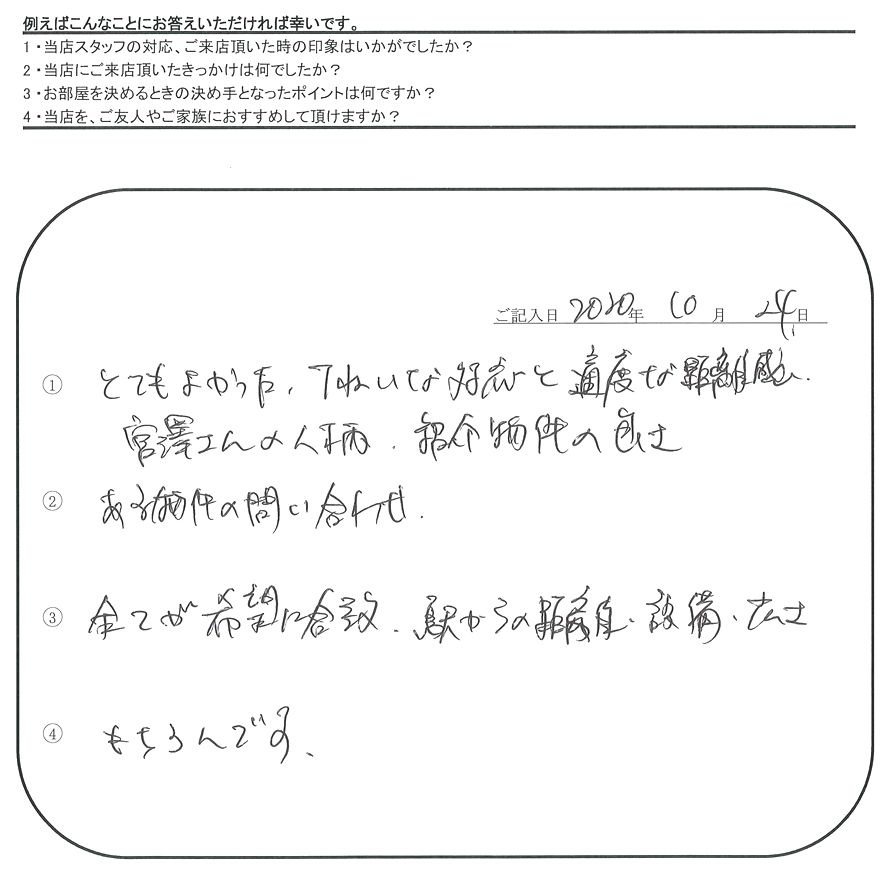 例えばこんなことにお答えいただければ幸いです。
1・当店スタッフの対応、ご来店頂いた時の印象はいかがでしたか?
2・当店にご来店頂いたきっかけは何でしたか?
3・お部屋を決めるときの決め手となったポイントは何ですか?
4・当店を、ご友人やご家族におすすめして頂けますか?
ご記入日 2020年 10月 24日
① とてもよかった、ていねいな対応と適度な距離感、
宮澤さんの人柄、紹介物件の良さ
② ある物件の問い合わせ.
③ 全てが希望に合致、駅からの距離・設備・広さ
④ もちろんです、